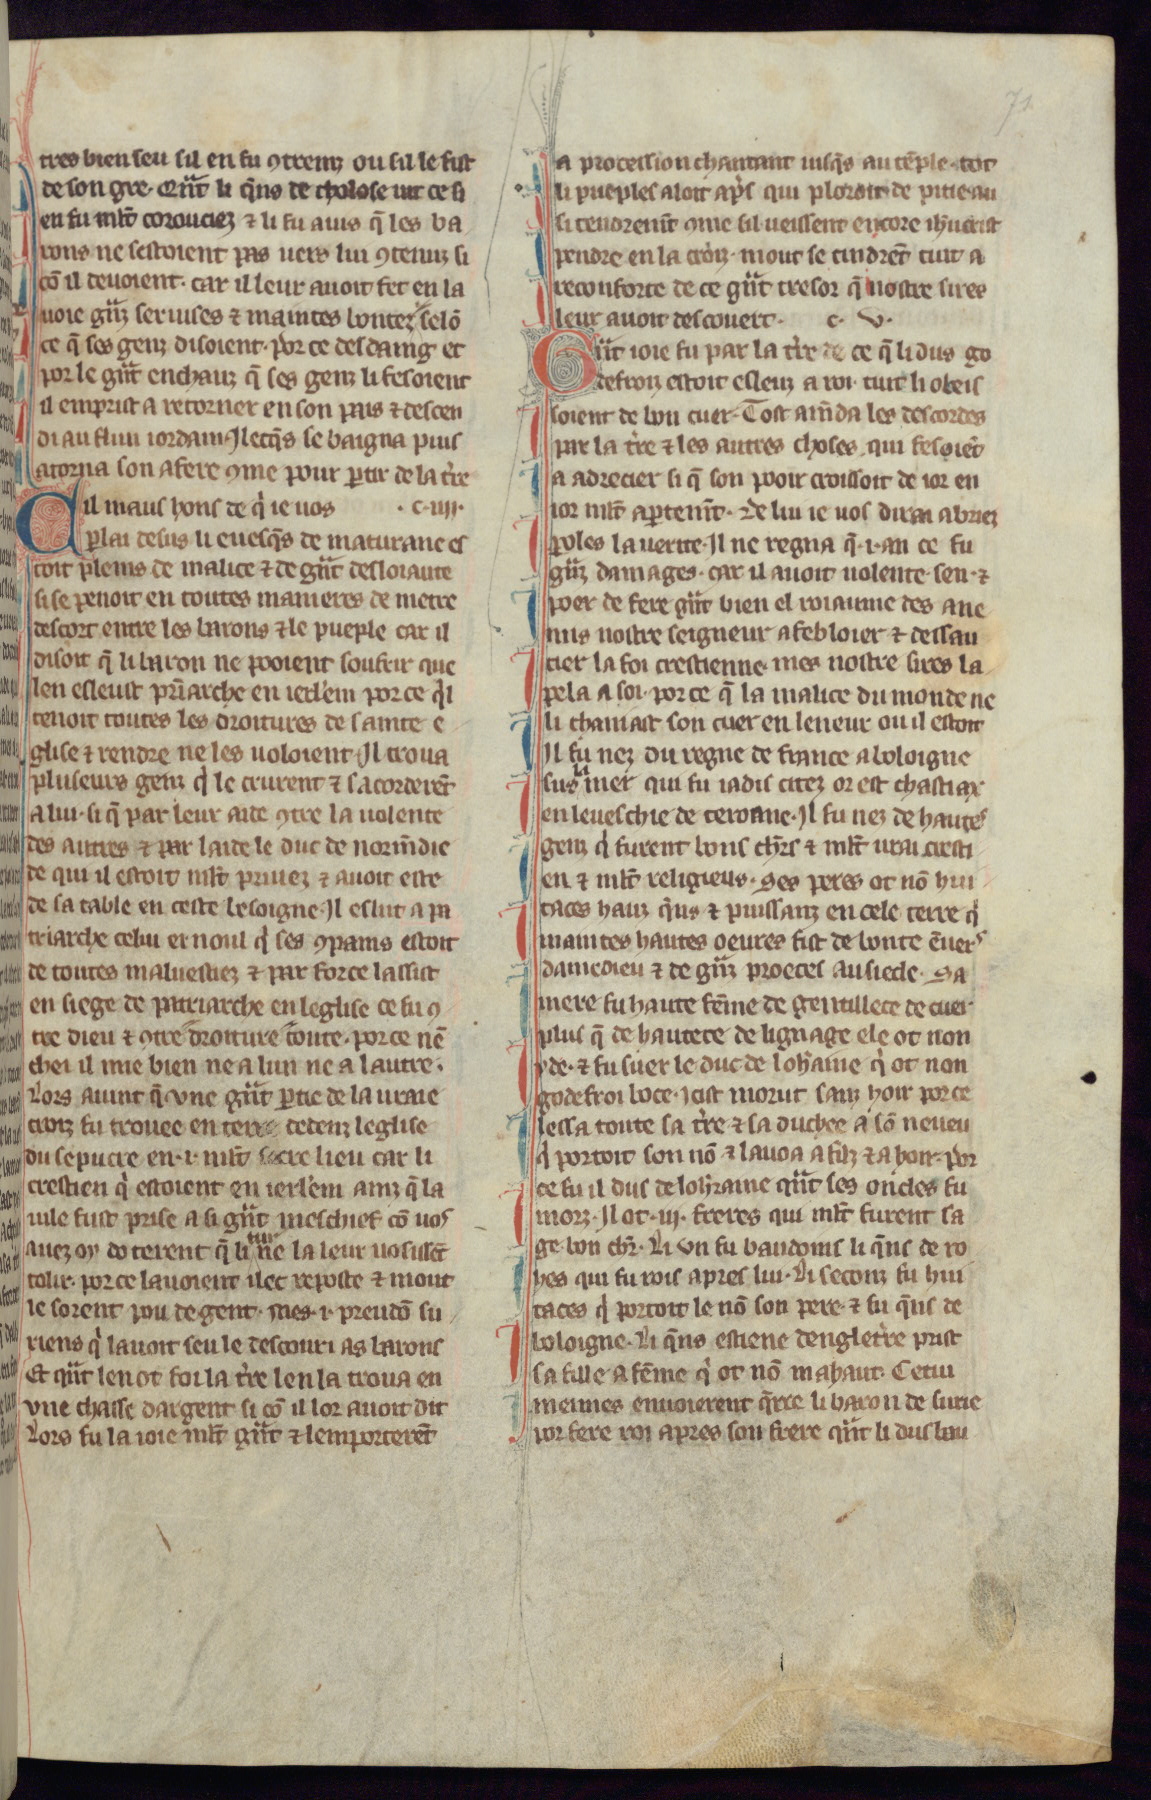 71
tres bien seu sil en fu ꝯtrenz ou sil le fist
de son gre. Qn̄t li q̄ns de tholose uit ce si
en fu ml̄t corouciez ⁊ li fu auis q̄ les ba
rons ne sestoient pas uers lui ꝯtenuz si
cō il deuoient. car il leur auoit fet en la
uoie gn̄z seruises ⁊ maintes bontez selō
ce q̄ ses genz disoient. por ce desdaing et
por le gn̄t enchauz q̄ ses genz li fesoient
il emprist a retorner en son pais ⁊ descen
di au flun iordain. Ilecq̄s se baigna puis
atorna son afere ꝯme pour ꝑtir de la tr̄e
Cil maus hons de q̇ ie uos .c.iiii.
ꝑlai desus li euesq̄s de maturane es
toit pleins de malice ⁊ de gn̄t desloiaute
si se penoit en toutes manieres de metre
descort entre les barons ⁊ le pueple car il
disoit q̄ li baron ne pooient soufrir que
len esleust pr̄iarche en ierl'em por ce q̇l
tenoit toutes les droitures de sainte e
glise ⁊ rendre ne les uoloient. Il troua
pluseurs genz q̇ le crurent ⁊ sacorderēt
a lui. si q̄ par leur aide ꝯtre la uolente
des autres ⁊ par laide le duc de norm̄die
de qui il estoit ml̄t priuez ⁊ auoit este
de sa table en ceste besoigne. Il eslut a pa
triarche celui ernoul q̇ ses ꝯpains estoit
de toutes maluestiez ⁊ par force lassist
en siege de patriarche en leglise ce fu ꝯ
tre dieu ⁊ ꝯtre droiture toute. por ce nē
chei il mie bien ne a lun ne a lautre.
Lors auint q̄ vne gn̄t ꝑtie de la uraie
croiz fu trouee en terre dedenz leglise
du sepucre en .i. ml̄t secre lieu car li
crestien q̇ estoient en ierl'em ainz q̄ la
uile fust prise a si gn̄t meschief cō uos
auez oy doterent q̄ li tur ne la leur uosissēt
tolir. por ce lauoient ilec reposte ⁊ mout
le sorent pou de gent. Mes .i. preudō su
riens q̇ lauoit seu le descouri as barons
Et qn̄t len ot foi la tr̄e len la troua en
vne chasse dargent si cō il lor auoit dit
Lors fu la ioie ml̄t gn̄t ⁊ lemporterēt
a procession chantant iusq̄s au tēple. tot
li pueples aloit ap̄s qui ploroit de pitie au
si tendremēt ꝯme sil ueissent encore ih'ucrist
pendre en la croiz. mout se tindrēt tuit a
reconforte de ce gn̄t tresor q̄ nostre sires
leur auoit descouert. c. v.
Gn̄t ioie fu par la tr̄e de ce q̄ li dus go
defroiz estoit esleuz a roi. tuit li obeis
soient de bon cuer. Tost am̄da les descordes
par la tr̄e ⁊ les autres choses qui fesoiēt
a adrecier si q̄ son pooir croissoit de ior en
ior ml̄t aꝑtemēt. De lui ie uos dirai a briez
ꝑoles la uerite. Il ne regna q̄ .i. an ce fu
gn̄z damages. car il auoit uolente. sen. ⁊
poer de fere gn̄t bien el roiaume des ane
mis nostre seigneur afebloier ⁊ dessau
cier la foi crestienne. mes nostre sires la
pela a soi. por ce q̄ la malice du monde ne
li chaniast son cuer en leneur ou il estoit
Il fu nez du regne de france a boloigne
sus la mer qui fu iadis citez or est chastiax
en leueschie de teroane. Il fu nez de hautes
genz q̇ furent bons ch'rs ⁊ ml̄t urai cresti
en ⁊ ml̄t religieus. Ses peres ot nō hui
taces hauz q̄ns ⁊ puissanz en cele terre q̇
maintes hautes oeures fist de bonte ēuers
damedieu ⁊ de gn̄z proeces au siecle. Sa
mere fu haute fēme de gentillece de cuer
plus q̄ de hautece de lignage ele ot non
yde. ⁊ fu suer le duc de loh'aine q̇ ot non
godefroi boce. icist morut sanz hoir por ce
lessa toute sa tr̄e ⁊ sa duchee a sō neueu
q̇ portoit son nō ⁊ lauoa a filz ⁊ a hoir. por
ce fu il dus de loh'raine qn̄t ses oncles fu
morz. Il ot .iii. freres qui ml̄t furent sa
ge bon ch'r. Li vn fu baudoins li q̄ns de ro
hes qui fu rois apres lui. Li seconz fu hui
taces q̇ portoit le nō son pere ⁊ fu q̄ns de
boloigne. Li q̄ns estiene dengletr̄e prist
sa fille a fēme q̇ ot nō mahaut. Cetui
meimes enuoierent q̄rre li baron de surie
por fere roi apres son frere qn̄t li dus bau